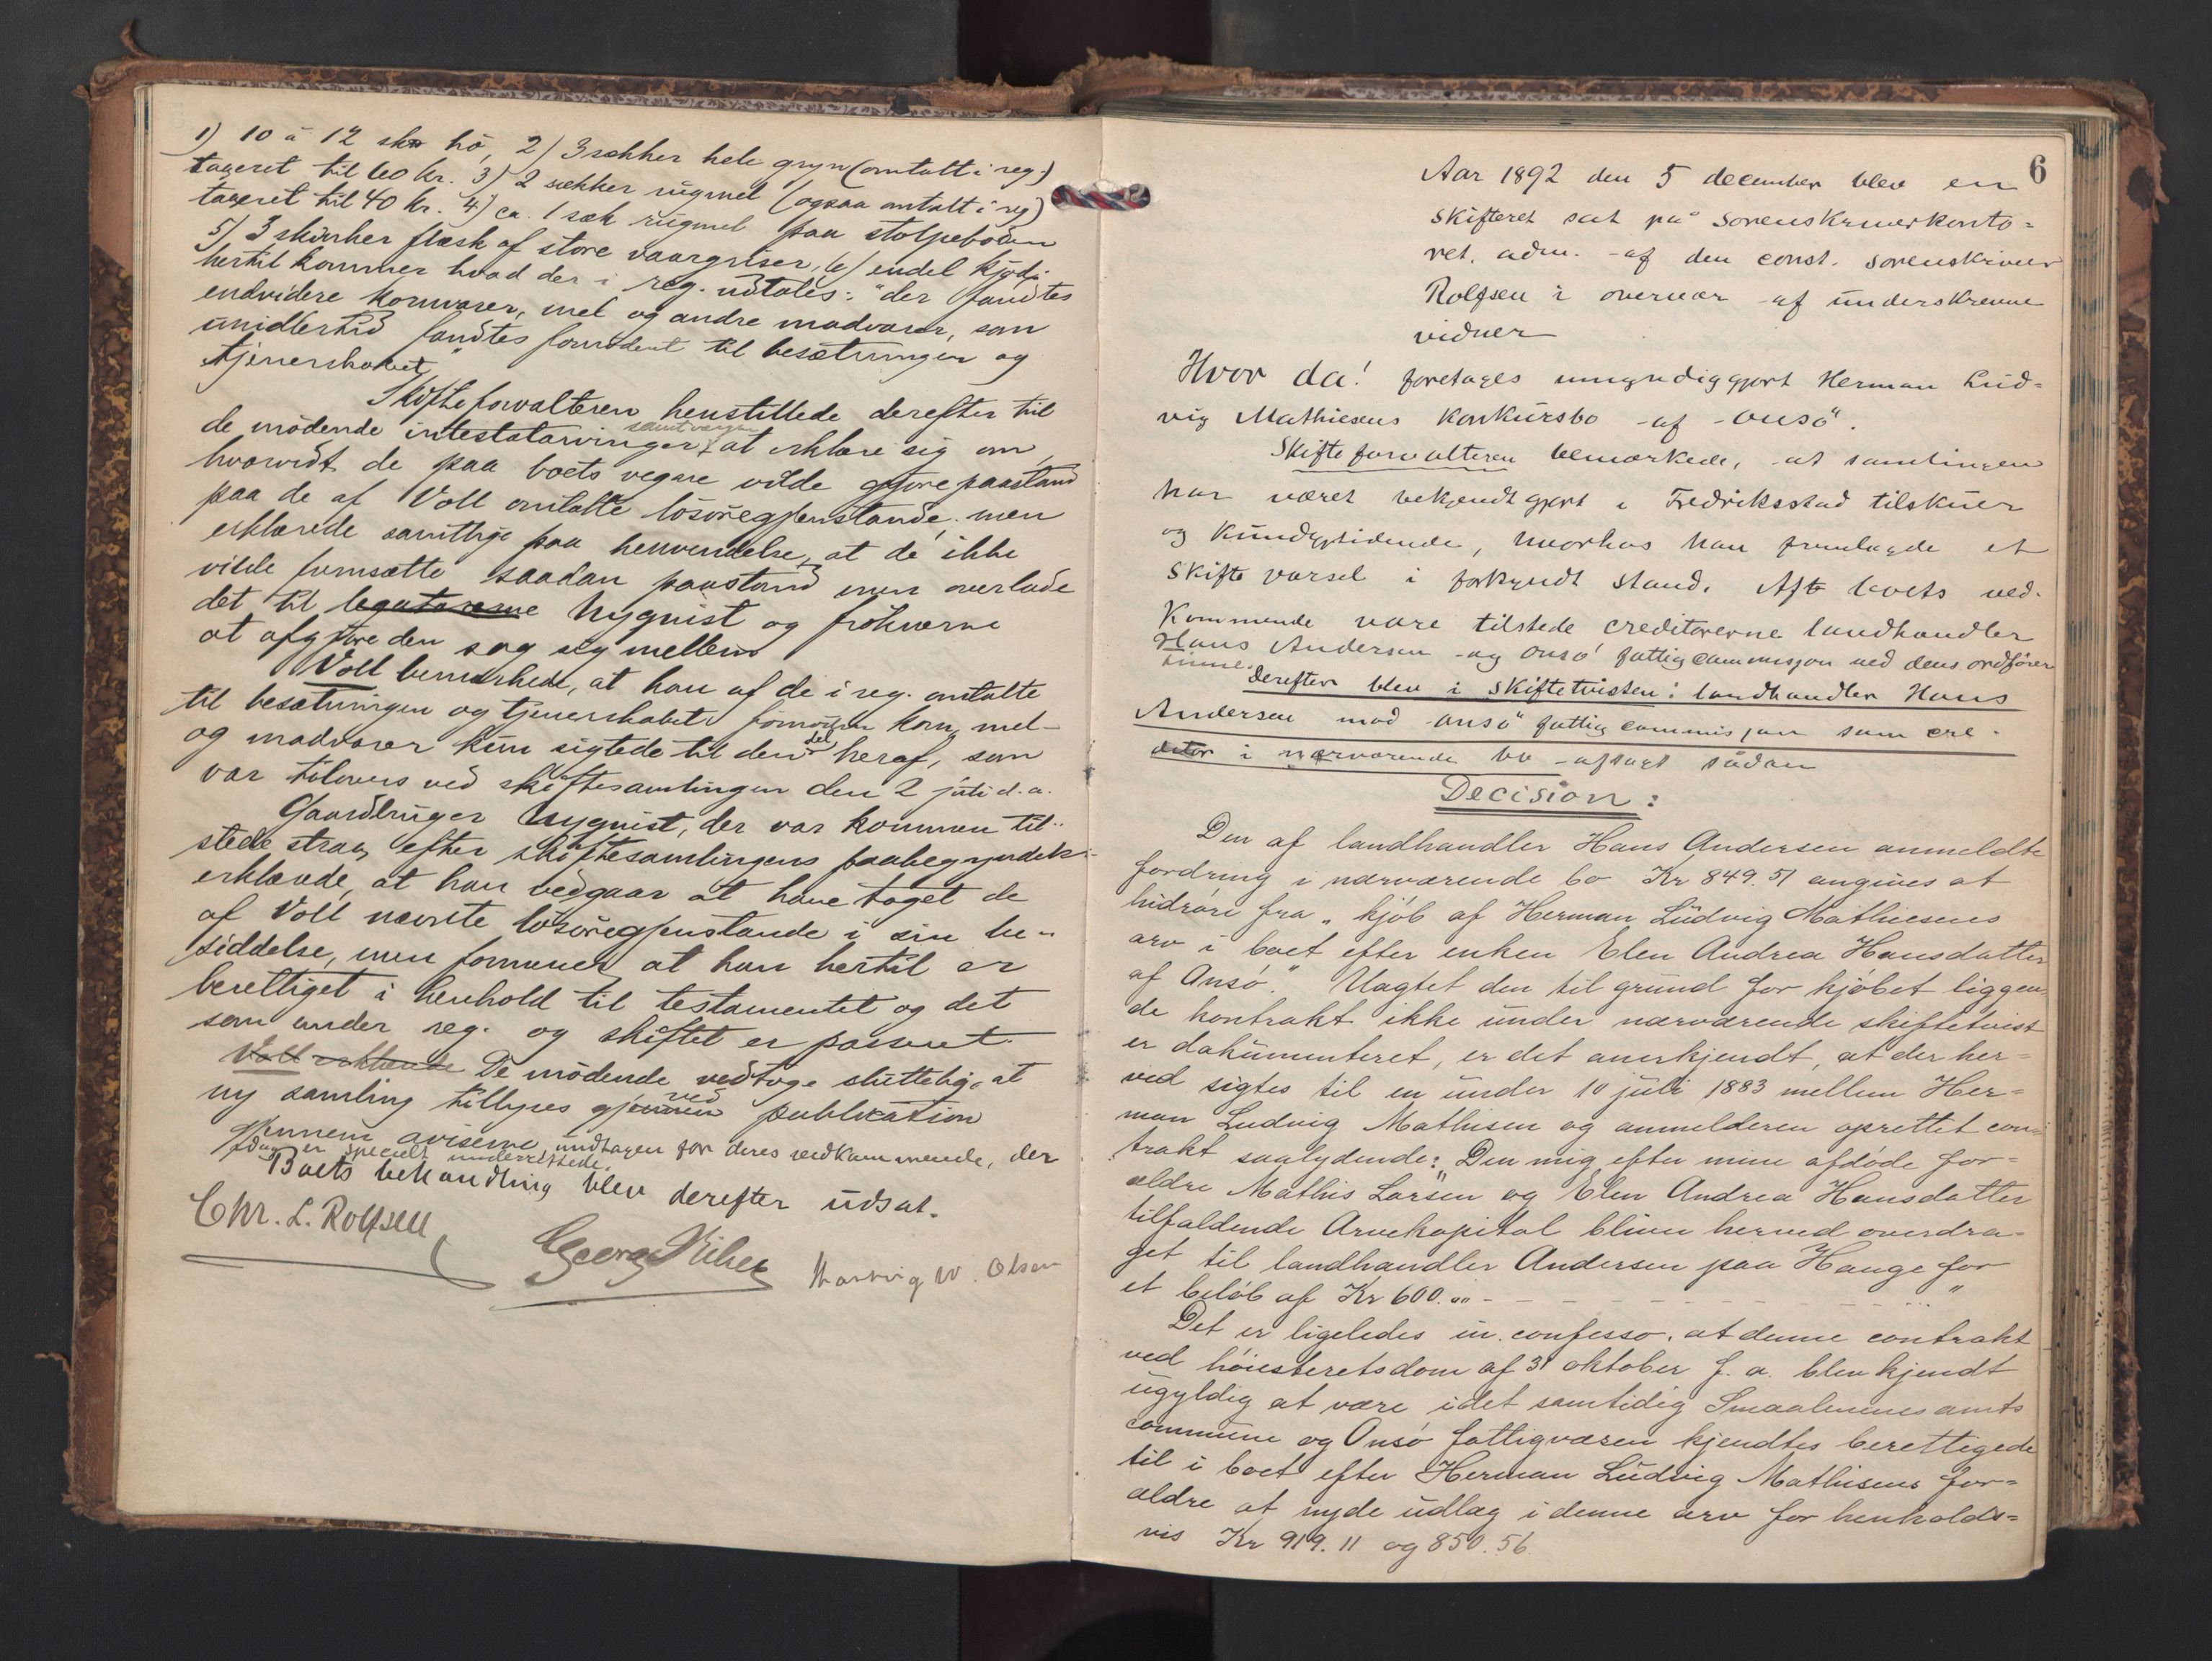 1) 10 à 12 skp hö, 2) 3 sækker hele gryn (omtalt i reg.)
taxeret til 60 kr. 3) 2 sækker rugmel (ogsaa omtalt i reg)
taxeret til 40 kr. 4) ca. 1 sæk rugmel paa stolpeboden
5) 3 skinker flæsk af store vaargriser, 6) endel kjöd;
hertil kommer hvad der i reg. udtales: "der fandtes
endvidere kornvarer, mel og andre madvarer, som
imidlertid fandtes fornödent til besætningen og
tjenerskabet"
Skifteforvalteren henstillede derefter til
de mödende intestatarvinger samt vergen at erklære sig om,
hvorvidt de paa boets vegne vilde gjöre paastand
paa de af Voll omtalte lösöregjenstande; men
erklærede samtlige paa henvendelse, at de ikke
vilde fremsætte saadan paastand men overlade
det til legatarerne Nyquist og fröknerne
at afgjöre den sag sig mellem
Voll bemærkede, at han af de i reg. omtalte
til besætningen og tjenerskabet fornödne korn, mel-
og madvarer kun sigtede til den del heraf, som
var tilovers ved skiftesamlingen den 2 juli d. a.
Gaardbruger Nyquist, der var kommen til-
stede strax efter skiftesamlingens paabegyndelse
erklærede, at han vedgaar at have taget de
af Voll nævnte lösöregjenstande i sin be-
siddelse, men formener at han hertil er
berettiget i henhold til testamentet og det
som under reg. og skiftet er passeret.
Voll erklærede De mödende vedtoge sluttelig, at
ny samling tillyses gjennem ved publikation
gjennem aviserne undtagen for deres vedkommende, der
idag er specielt underrettede.
Boets behandling blev derefter udsat.
Chr. L. Rolfsen Georg Hartvig W. Olsen
6
Aar 1892 den 5 december blev en
skifteret sat på sorenskriverkonto=
ret, adm. af den const. sorenskriver
Rolfsen i overvær af underskrevne
vidner
Hvor da! foretages umyndiggjort Herman Lud=
vig Mathisens konkursbo af Onsö.
Skifteforvalteren bemærkede, at samlingen
har været bekjendtgjort i Fredriksstad tilskuer
og Kundgjtidende, hvorhos han fremlagde et
Skiftevarsel i forkyndt stand. Af boets ved-
kommende vare tilstede creditorerne landhandler
Hans Andersen og Onsö fattigcommisjon ved dens ordförer
Derefter blev i skiftetvisten: landhandler Hans
Andersen mod Onsö fattigcommisjon som cre-
ditor i nærværende bo afsagt sådan
Decision:
Den af landhandler Hans Andersen anmeldte
fordring i nærværende bo Kr 849.51 angives at
hidröre fra "kjöb af Herman Ludvig Mathisens
arv i boet efter enken Elen Andrea Hansdatter
af Onsö." Uagtet den til grund for kjöbet liggen-
de kontrakt ikke under nærværende skiftetvist
er dokumenteret, er det anerkjendt, at der her=
ved sigtes til en under 10 juli 1883 mellem Her=
man Ludvig Mathisen og anmelderen oprettet con=
trakt saalydende: "Den mig efter mine afdöde for=
ældre Mathis Larsen og Elen Andrea Hansdatter
tilfaldende Arvekapital bliver herved overdra=
get til landhandler Andersen paa Hauge for
et belöb af Kr 600.00 - - - - - - "
Det er ligeledes in confesso, at denne contrakt
ved höiesteretsdom af 31 oktober f. a. blev kjendt
ugyldig at være idet samtidig Smaalenenes amts
commune og Onsö fattigvæsen kjendtes berettigede
til i boet efter Herman Ludvig Mathisens for=
ældre at nyde udlæg i denne arv for henholds=
vis Kr 919.11 og 850.56